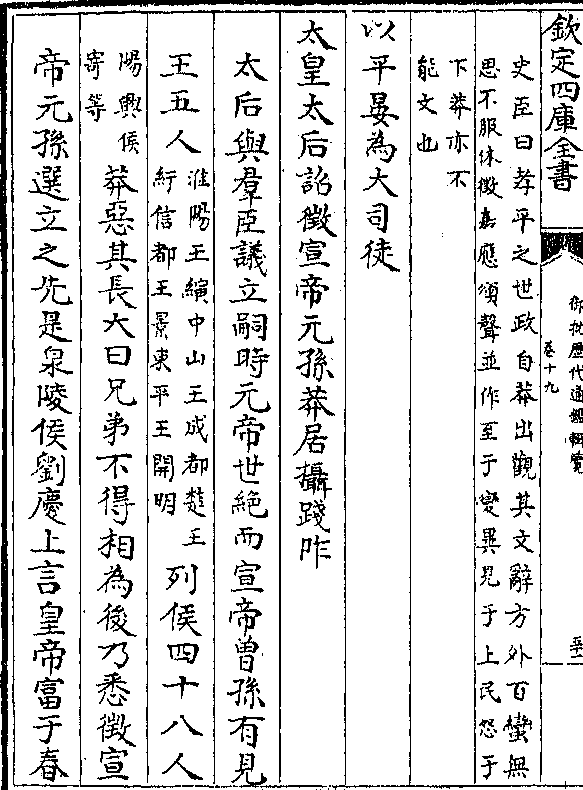 欽定四庫全書
御批歷代通鑑輯覽
卷十九
史臣曰孝平之世政自莽出觀其文辭方外百蠻無
思不服休徵嘉應頌聲並作至于變異見于上民怨于
下莽亦不
能文也
以平晏為大司徒
太皇太后詔徵宣帝元孫莽居攝踐咋
太后與羣臣議立嗣時元帝世絶而宣帝曾孫有見
王五人
淮陽王縯中山王成都楚王
紆信都王景東平王開明
列侯四十八人
陽興侯
寄等
莽惡其長大曰兄弟不得相為後乃悉徵宣
帝元孫選立之先是泉陵侯劉慶上言皇帝富于春